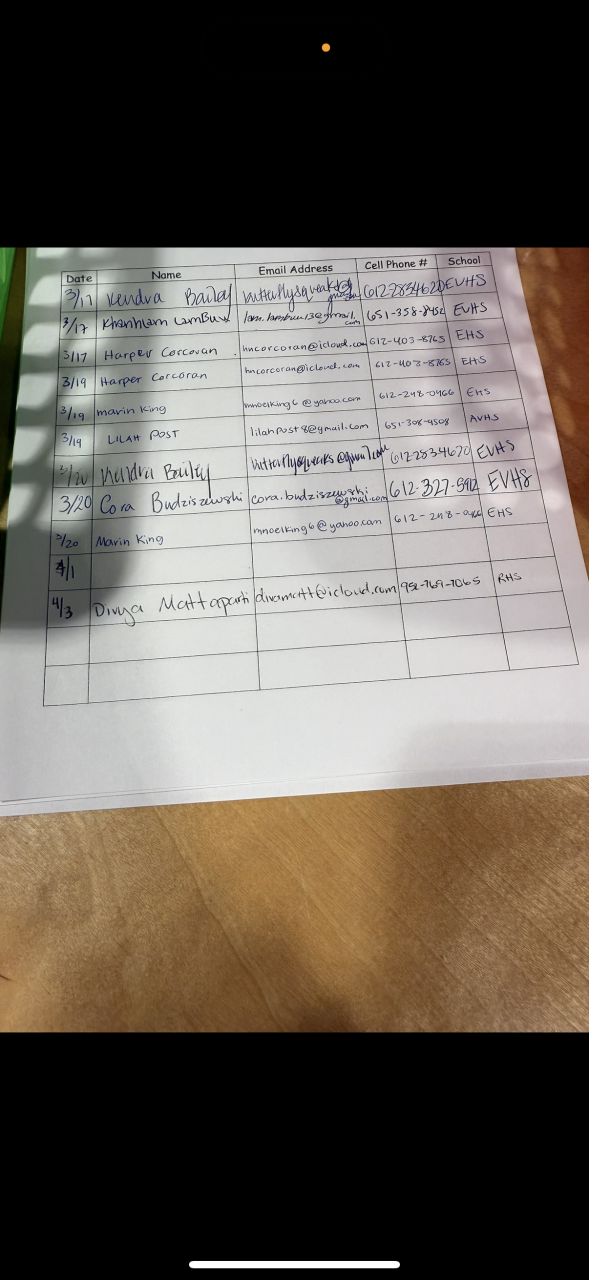 Date Name Email Address Cell Phone # School
3/17 Kendra Bailey 6122834620 EVHS
3/17 Khanhlam Lambuu 651-358-8452 EVHS
3/17 Harper Corcoran hncorcoran@icloud.com 612-403-8765 EHS
3/19 Harper Corcoran hncorcoran@icloud.com 612-403-8765 EHS
3/19 marin King mnoelking6@yahoo.com 612-248-0466 EHS
3/19 LILAH POST lilahpost8@gmail.com 651-308-4508 AVHS
3/20 Kendra Bailey 6122834620 EVHS
3/20 Cora Budziszewski cora.budziszewski@gmail.com 612-327-5912 EVHS
3/20 Marin King mnoelking6@yahoo.com 612-248-0466 EHS
4/1
4/3 Divya Mattaparti divamatt@icloud.com 952-769-7065 RHS